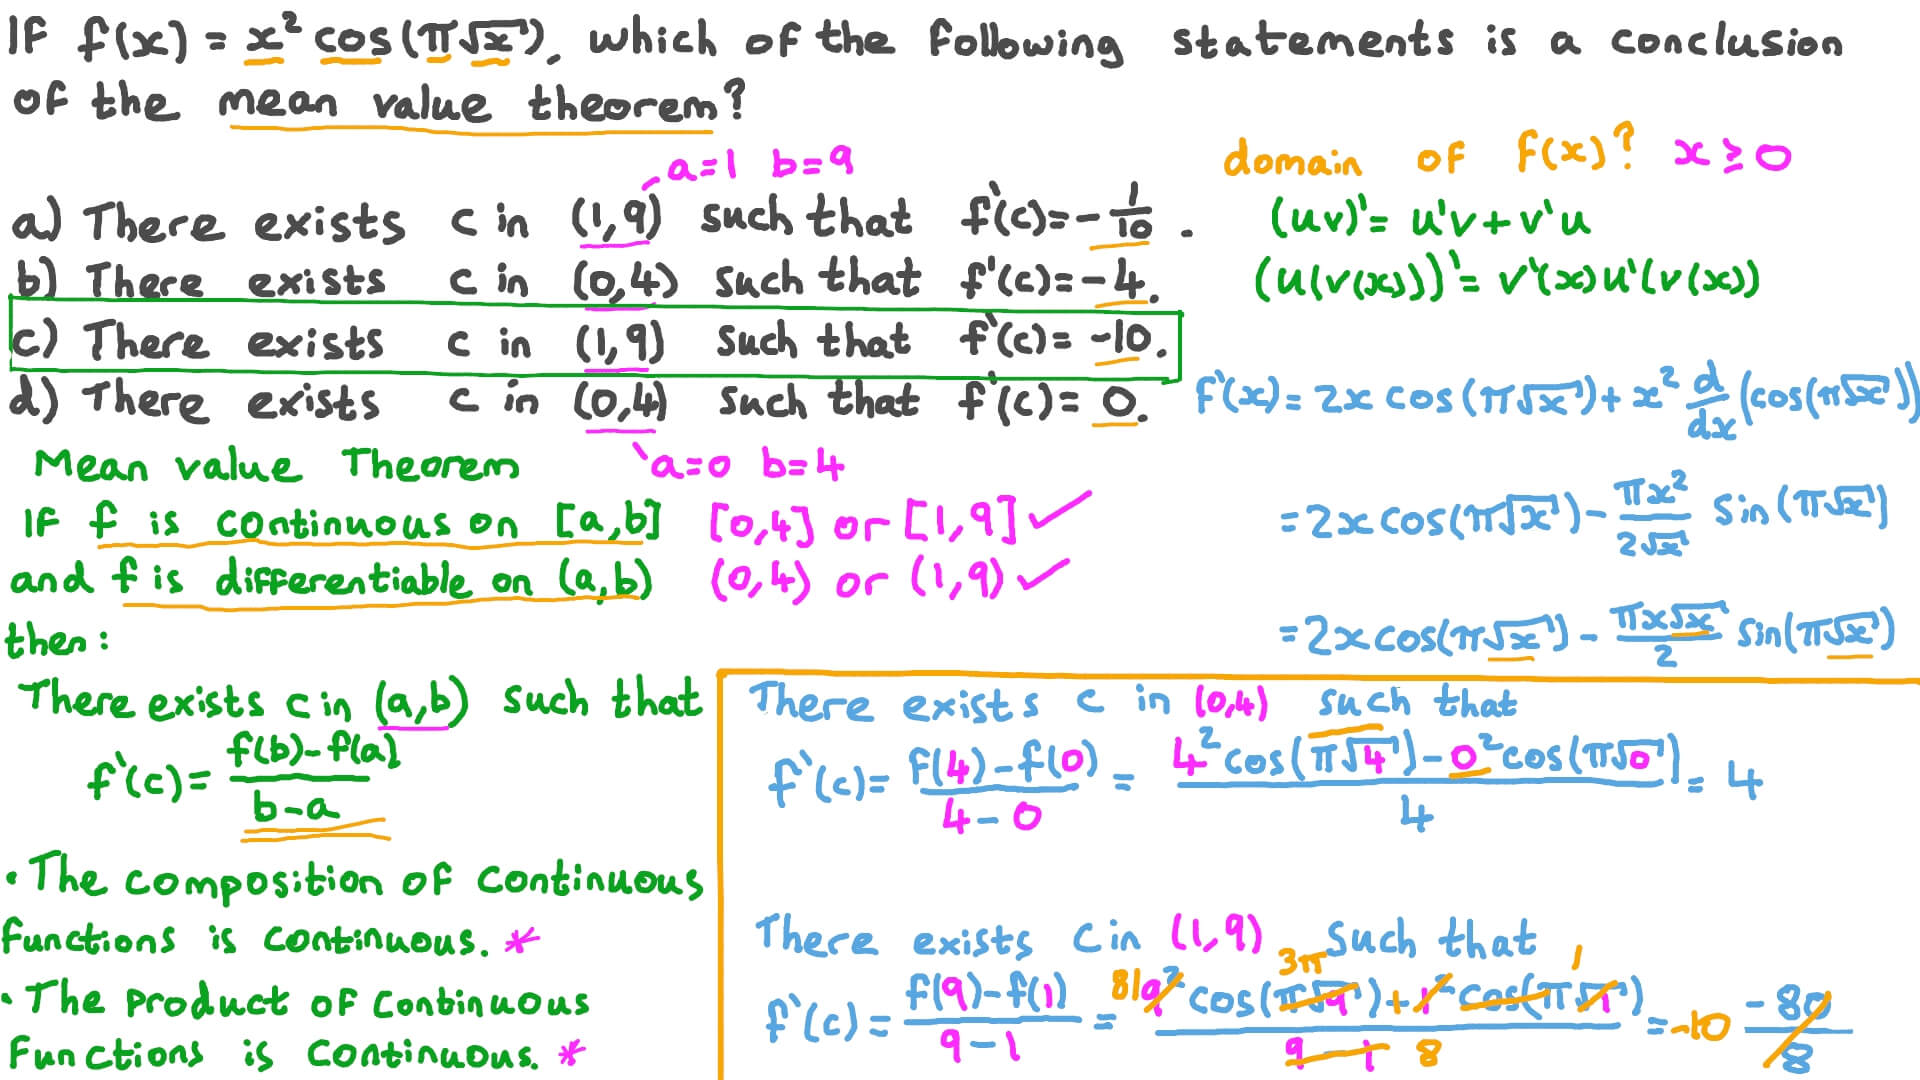 IF f(x) = x² cos(π√x), which of the following statements is a conclusion
of the mean value theorem?
a=1 b=9
a) There exists c in (1,9) such that f'(c)=-1/10.
b) There exists c in (0,4) such that f'(c)=-4.
c) There exists c in (1,9) such that f'(c)= -10.
d) There exists c in (0,4) such that f'(c)= 0.
a=0 b=4
domain of f(x)? x≥0
(uv)'= u'v+v'u
(u(v(x)))'= v'(x)u'(v(x))
f'(x)= 2x cos(π√x)+x² d/dx (cos(π√x))
=2x cos(π√x)- πx²/2√x sin(π√x)
=2x cos(π√x) - πx√x/2 sin(π√x)
Mean value Theorem
IF f is continuous on [a,b] [0,4] or [1,9] ✓
and f is differentiable on (a,b) (0,4) or (1,9) ✓
then:
There exists c in (a,b) such that
f'(c)= f(b)-f(a)/b-a
• The composition of continuous
functions is continuous. *
• The product of continuous
Functions is continuous. *
There exists c in (0,4) such that
f'(c)= f(4)-f(0)/4-0 = 4²cos(π√4)-0²cos(π√0)/4 = 4
There exists c in (1,9) such that
3π 1
f'(c)= f(9)-f(1)/9-1 = 81 9² cos(π√9)+1²cos(π√1)/9-1 8 = -10 -80/8